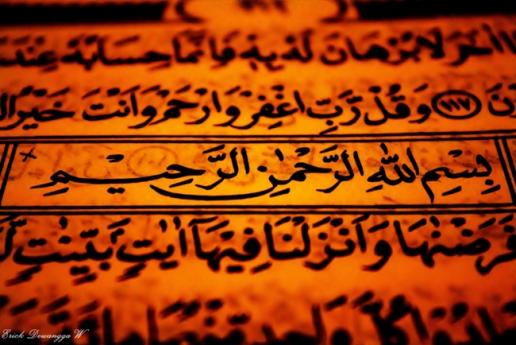 اٰخَرَ لَا بُرْهَانَ لَهٗ بِهٖ فَاِنَّمَا حِسَابُهٗ عِنْدَ
نَ ﴿١١٧﴾ وَقُلْ رَّبِّ اغْفِرْ وَارْحَمْ وَاَنْتَ خَيْرُ ال
بِسْمِ اللّٰهِ الرَّحْمٰنِ الرَّحِيْمِ
فَرَضْنٰهَا وَاَنْزَلْنَا فِيْهَا اٰيٰتٍ بَيِّنٰتٍ لَّ
Erick Dewangga W